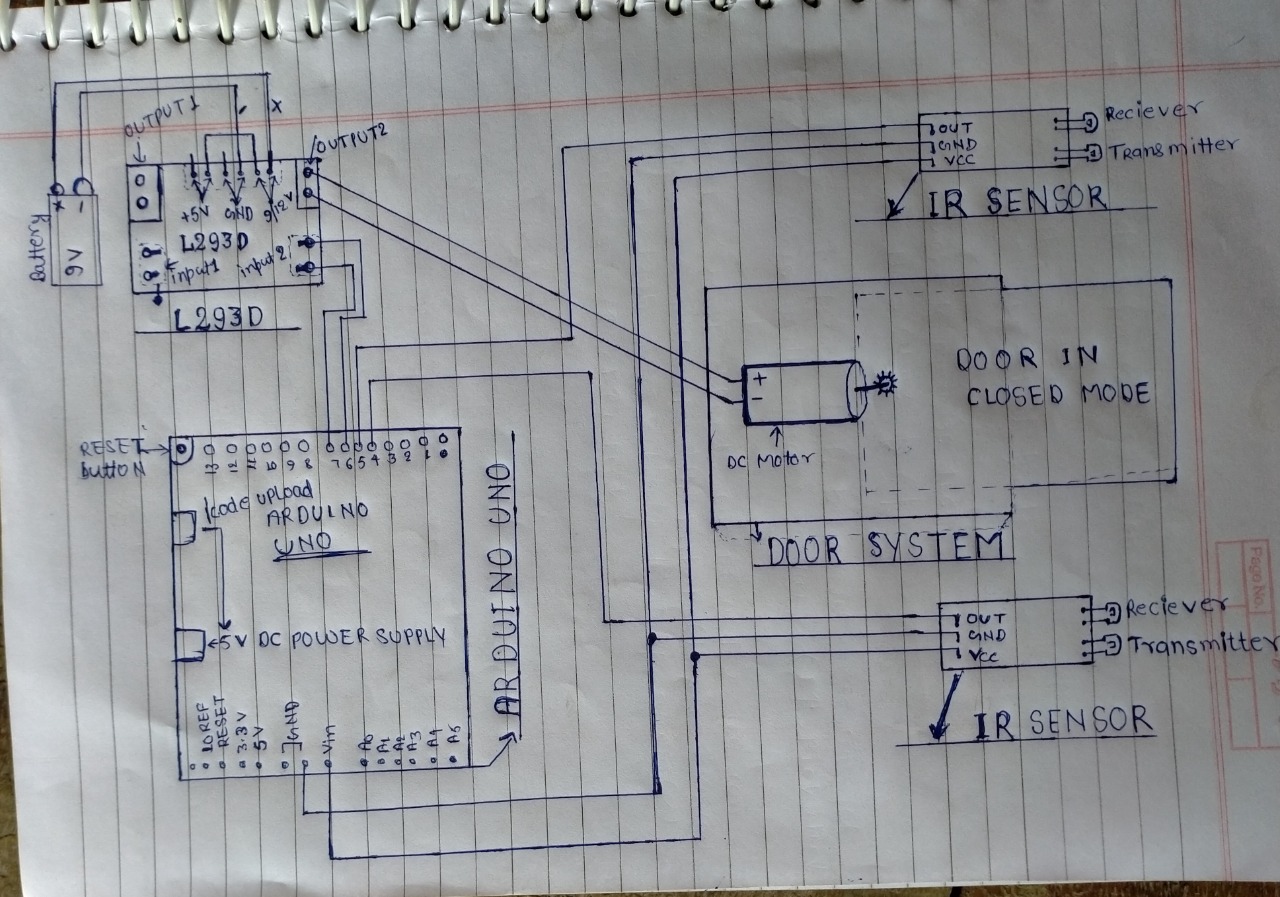 OUTPUT1
- x
OUTPUT2
+5V GND 9/12V
L293D
input1 input2
L293D
Battery
9V
+ -
OUT
GND
VCC
Reciever
Transmitter
IR SENSOR
DOOR IN
CLOSED MODE
+
-
DC Motor
DOOR SYSTEM
RESET
button
13 12 11 10 9 8 7 6 5 4 3 2 1 0
kode upload
ARDUINO
UNO
5V DC POWER SUPPLY
ARDUINO UNO
IOREF
RESET
3.3V
5V
GND
Vin
A0
A1
A2
A3
A4
A5
OUT
GND
VCC
Reciever
Transmitter
IR SENSOR
Page No.